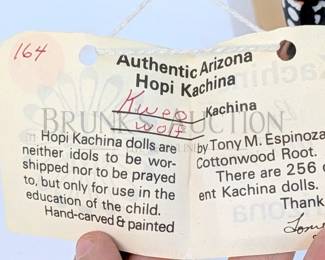 164
Authentic Arizona
Hopi Kachina
Kweo Kachina
wolf
Hopi Kachina dolls are
neither idols to be wor-
shipped nor to be prayed
to, but only for use in the
education of the child.
Hand-carved & painted
by Tony M. Espinoza
Cottonwood Root.
There are 256
ent Kachina dolls.
Thank
BRUNK AUCTION